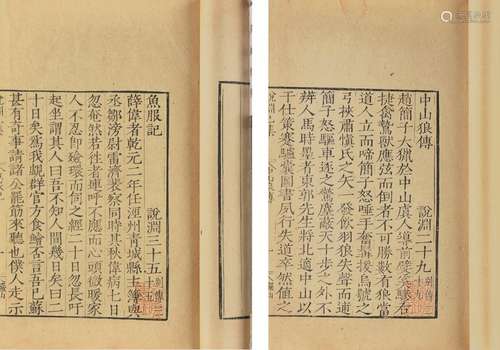 中山狼傳　說淵二十九　別傳二十九
趙簡子大獵於中山虞人導前嬖奚驂右
捷禽鷙獸應弦而倒者不可勝數有狼當
道人立而啼簡子怒唾手奮髯援烏號之
弓挾肅慎氏之矢一發飲羽狼失聲而逋
簡子怒驅車逐之驚塵蔽天十步之外不
辨人馬時墨者東郭先生將北適中山以
干仕策蹇驢囊圖書夙行失道卒然值之
魚服記　說淵三十五　別傳三十五
薛偉者乾元二年任涇州青城縣主簿與
丞鄒滂尉雷濟裴察同時其秋偉病七日
忽奄然若往者連呼不應而心頭微暖家
人不忍即殮環而伺之經二十日忽長吁
起坐謂其人曰吾不知人間幾日矣曰二
十日矣為我覰群官方食鱠否言吾已蘇
甚有奇事請諸公罷筯來聽也僕人走示